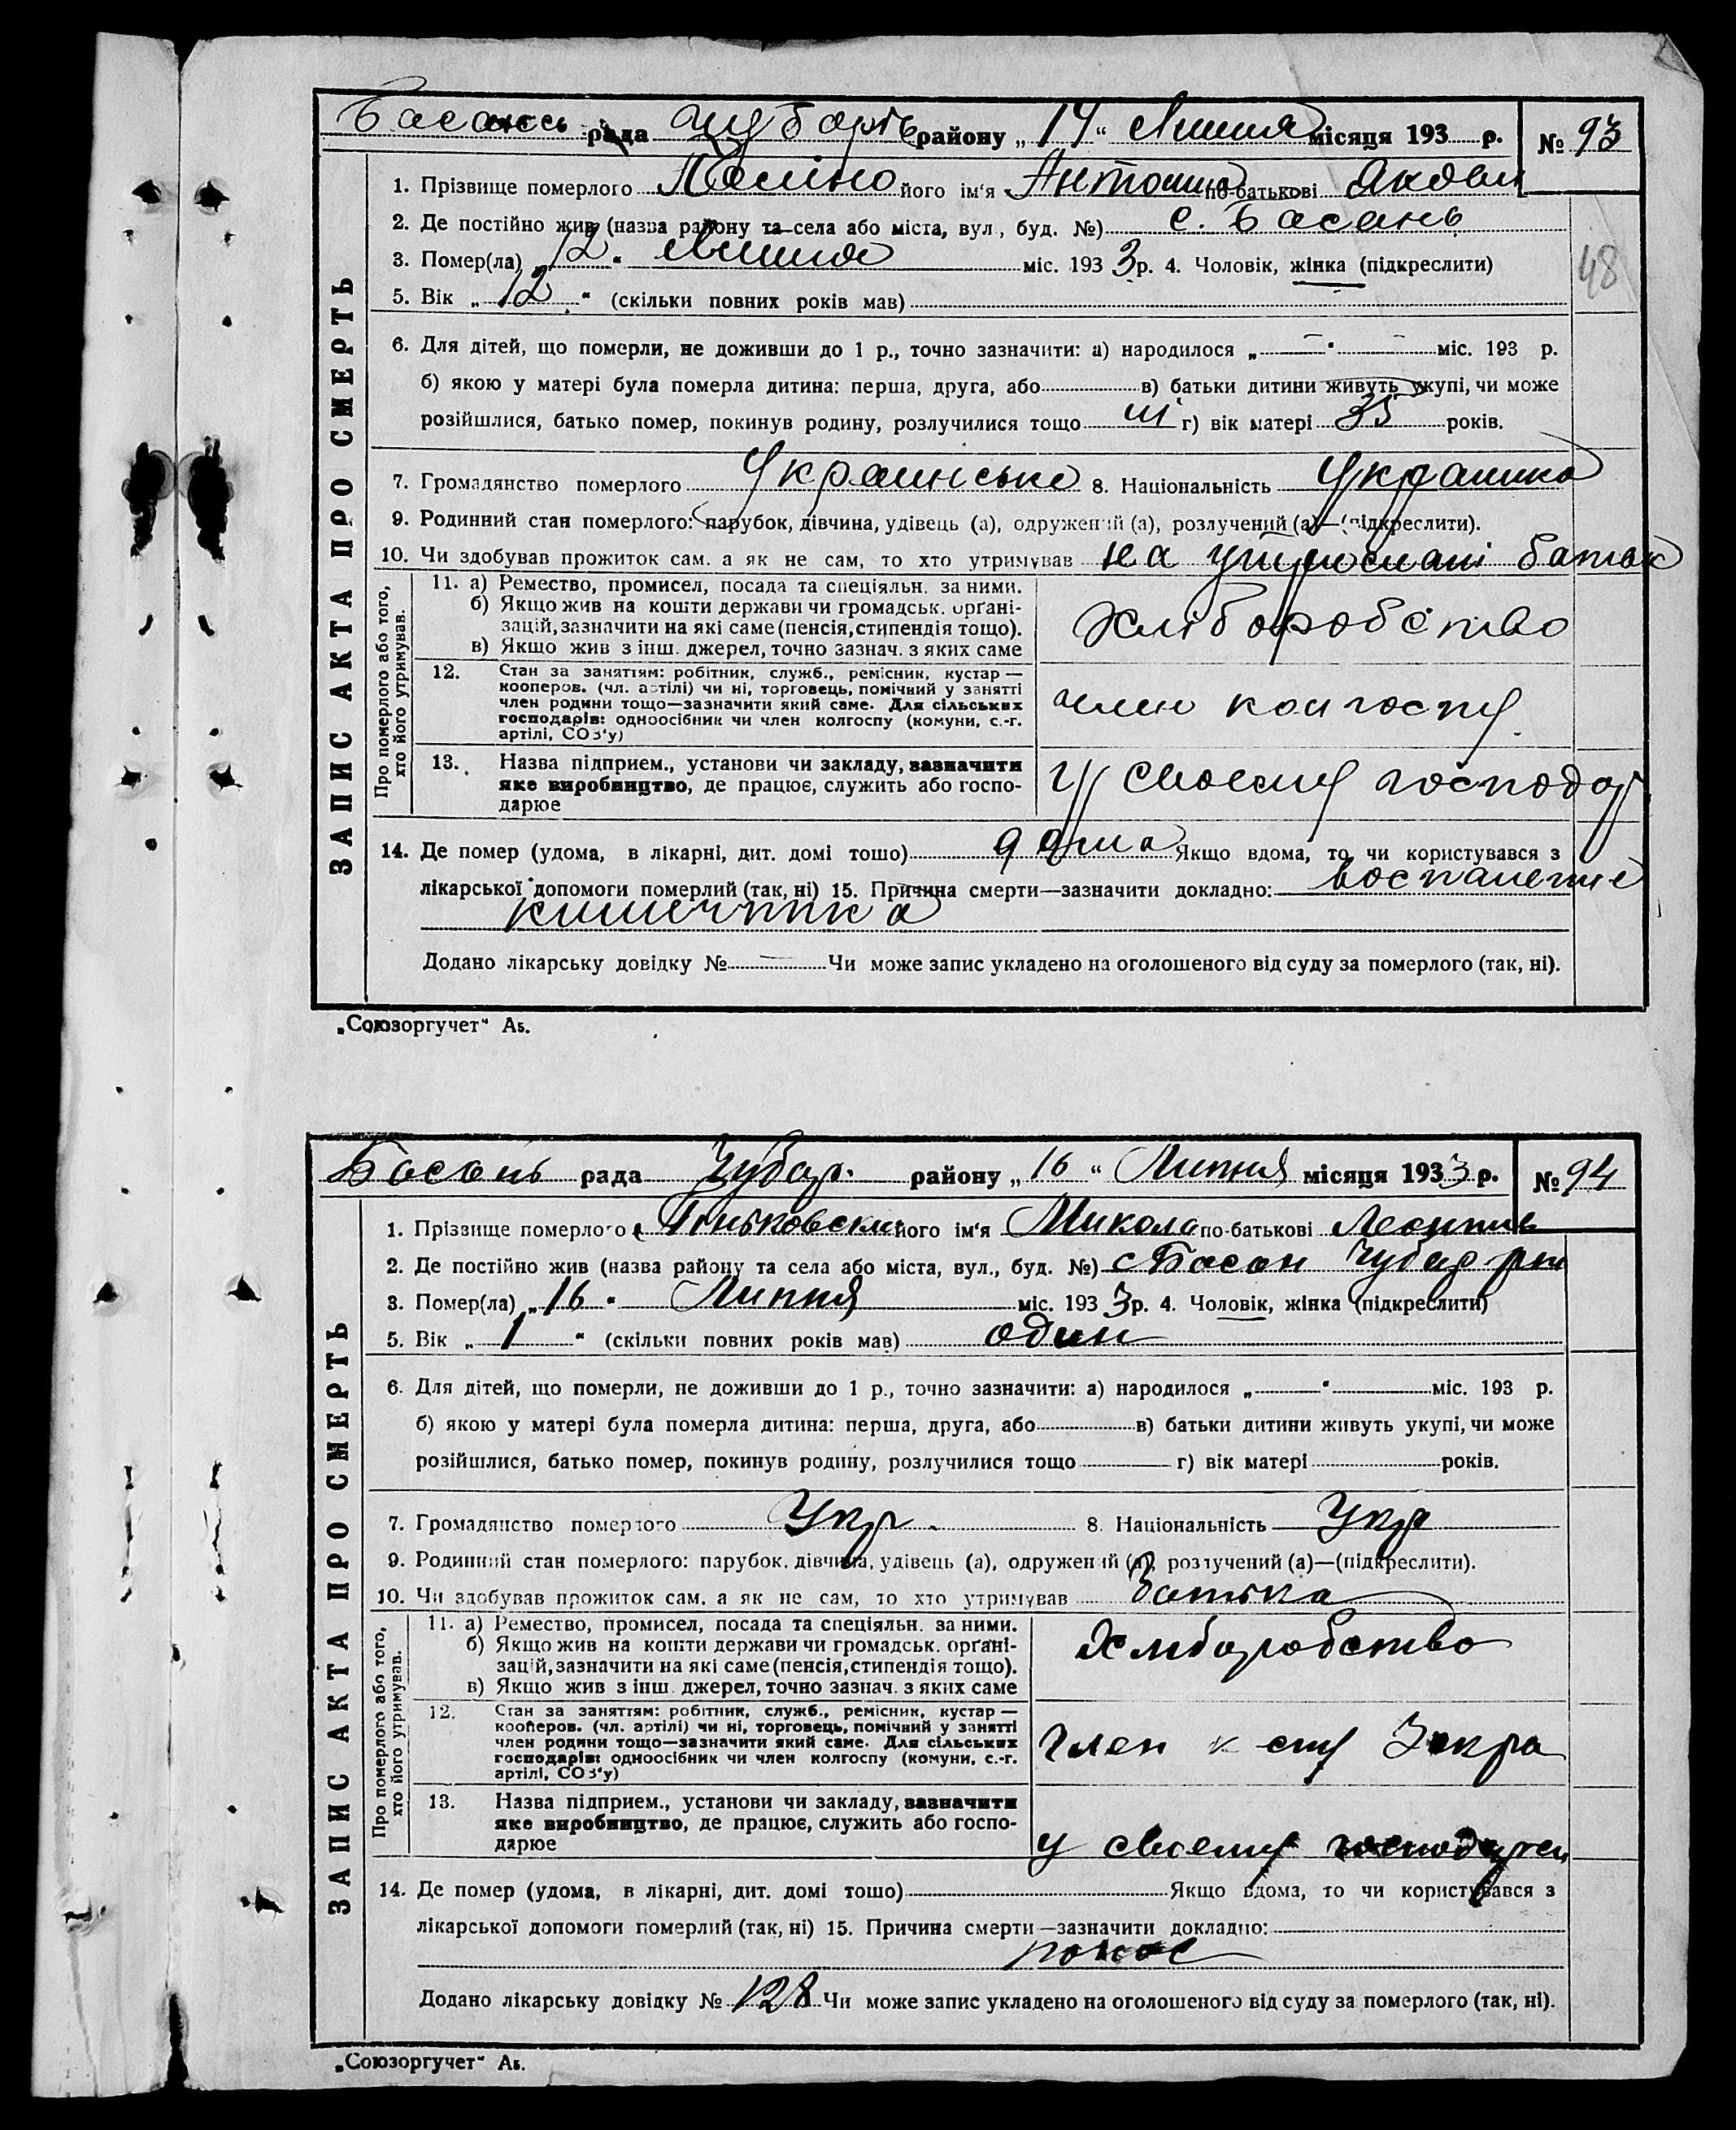 Басань рада Чубарів району „ 14 “ Липня місяця 193 р. № 93
1. Прізвище померлого його ім'я Антонина по-батькові Яковл
2. Де постійно жив (назва району та села або міста, вул., буд. №) с. Басань
3. Помер(ла) „ 12 “ Липня міс. 193 3 р. 4. Чоловік, жінка (підкреслити)
48
5. Вік „ 12 “ (скільки повних років мав)
6. Для дітей, що померли, не доживши до 1 р., точно зазначити: а) народилося „ — “ — міс. 193 р.
б) якою у матері була померла дитина: перша, друга, або в) батьки дитини живуть укупі, чи може
розійшлися, батько помер, покинув родину, розлучилися тощо г) вік матері 35 років.
7. Громадянство померлого Украинське 8. Національність Украинка
9. Родинний стан померлого: парубок, дівчина, удівець (а), одружений (а), розлучений (а)—(підкреслити).
10. Чи здобував прожиток сам, а як не сам, то хто утримував на утримані батька
11. а) Ремество, промисел, посада та спеціяльн. за ними.
б) Якщо жив на кошти держави чи громадськ. орґані-
зацій, зазначити на які саме (пенсія, стипендія тощо).
в) Якщо жив з інш. джерел, точно зазнач. з яких саме
Хліборобство
12. Стан за заняттям: робітник, служб., ремісник, кустар —
кооперов. (чл. артілі) чи ні, торговець, помічний у занятті
член родини тощо—зазначити який саме. Для сільських
господарів: одноосібник чи член колгоспу (комуни, с.-г.
артілі, СОЗ'у)
член колгоспу
13. Назва підприєм., установи чи закладу, зазначити
яке виробництво, де працює, служить або госпо-
дарює
у своему господар
14. Де помер (удома, в лікарні, дит. домі тошо) дома Якщо вдома, то чи користувався з
лікарської допомоги померлий (так, ні) 15. Причина смерти—зазначити докладно: воспаление
кишечника
Додано лікарську довідку № — Чи може запис укладено на оголошеного від суду за померлого (так, ні).
ЗАПИС АКТА ПРО СМЕРТЬ
Про померлого або того,
хто його утримував.
„Союзоргучет“ А5.
Басань рада Чубар. району „ 16 “ Липня місяця 193 3 р. № 94
1. Прізвище померлого його ім'я Микола по-батькові Леонтив
2. Де постійно жив (назва району та села або міста, вул., буд. №) с Басан Чубар рн
3. Помер(ла) „ 16 “ Липня міс. 193 3 р. 4. Чоловік, жінка (підкреслити)
5. Вік „ 1 “ (скільки повних років мав) один
6. Для дітей, що померли, не доживши до 1 р., точно зазначити: а) народилося „ “ міс. 193 р.
б) якою у матері була померла дитина: перша, друга, або в) батьки дитини живуть укупі, чи може
розійшлися, батько помер, покинув родину, розлучилися тощо г) вік матері років.
7. Громадянство померлого Укр. 8. Національність Укр
9. Родинний стан померлого: парубок, дівчина, удівець (а), одружений (а), розлучений (а)—(підкреслити).
10. Чи здобував прожиток сам, а як не сам, то хто утримував Батька
11. а) Ремество, промисел, посада та спеціяльн. за ними.
б) Якщо жив на кошти держави чи громадськ. орґані-
зацій, зазначити на які саме (пенсія, стипендія тощо).
в) Якщо жив з інш. джерел, точно зазнач. з яких саме
Хлиборобство
12. Стан за заняттям: робітник, служб., ремісник, кустар —
кооперов. (чл. артілі) чи ні, торговець, помічний у занятті
член родини тощо—зазначити який саме. Для сільських
господарів: одноосібник чи член колгоспу (комуни, с.-г.
артілі, СОЗ'у)
Член к спу
13. Назва підприєм., установи чи закладу, зазначити
яке виробництво, де працює, служить або госпо-
дарює
у своему
14. Де помер (удома, в лікарні, дит. домі тошо) Якщо вдома, то чи користувався з
лікарської допомоги померлий (так, ні) 15. Причина смерти—зазначити докладно:
понос
Додано лікарську довідку № 128 Чи може запис укладено на оголошеного від суду за померлого (так, ні).
ЗАПИС АКТА ПРО СМЕРТЬ
Про померлого або того,
хто його утримував.
„Союзоргучет“ А5.